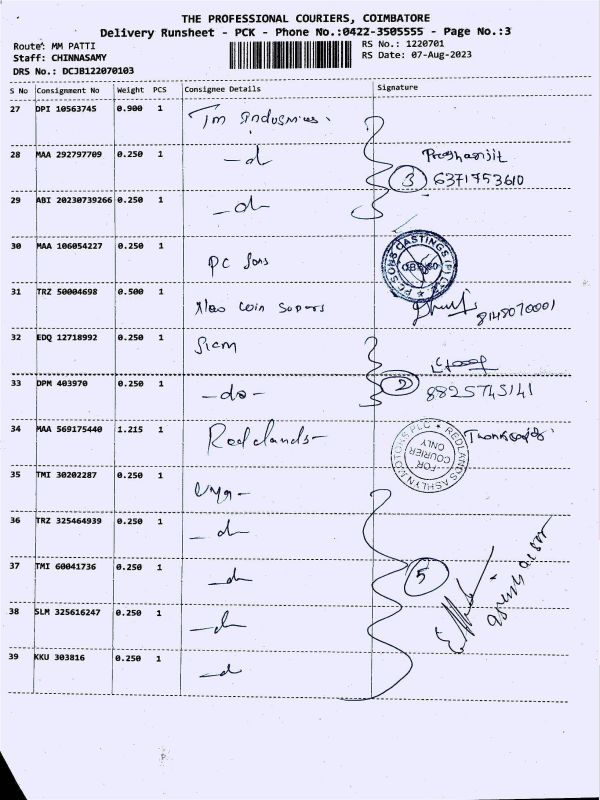 THE PROFESSIONAL COURIERS, COIMBATORE
Delivery Runsheet - PCK - Phone No.:0422-3505555 - Page No.:3
Route: MM PATTI RS No.: 1220701
Staff: CHINNASAMY RS Date: 07-Aug-2023
DRS No.: DCJB122070103
S No Consignment No Weight PCS Consignee Details Signature
27 DPI 10563745 0.900 1 Tm
28 MAA 292797709 0.250 1 -do
3 6371753610
29 ABI 20230739266 0.250 1 -do-
30 MAA 106054227 0.250 1 PC Sons
31 TRZ 50004698 0.500 1 Coin
8148070001
32 EDQ 12718992 0.250 1
33 DPM 403970 0.250 1 -do- 2 8825745141
34 MAA 569175440 1.215 1 Redlands-
REDLANDS ASHLYN MOTORS PLC
FOR
COURIER
ONLY
35 TMI 30202287 0.250 1
36 TRZ 325464939 0.250 1 -do
37 TMI 60041736 0.250 1 -do
5
38 SLM 325616247 0.250 1 -do
39 KKU 303816 0.250 1 -do